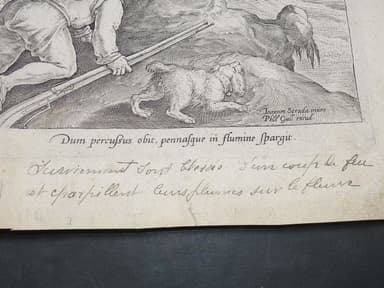 Ioannes Strada inven
Phls Gall excud
Dum percussus obit, pennasque in flumine spargit
sont blessés d'un coup de feu
et éparpillent leurs plumes sur le fleuve